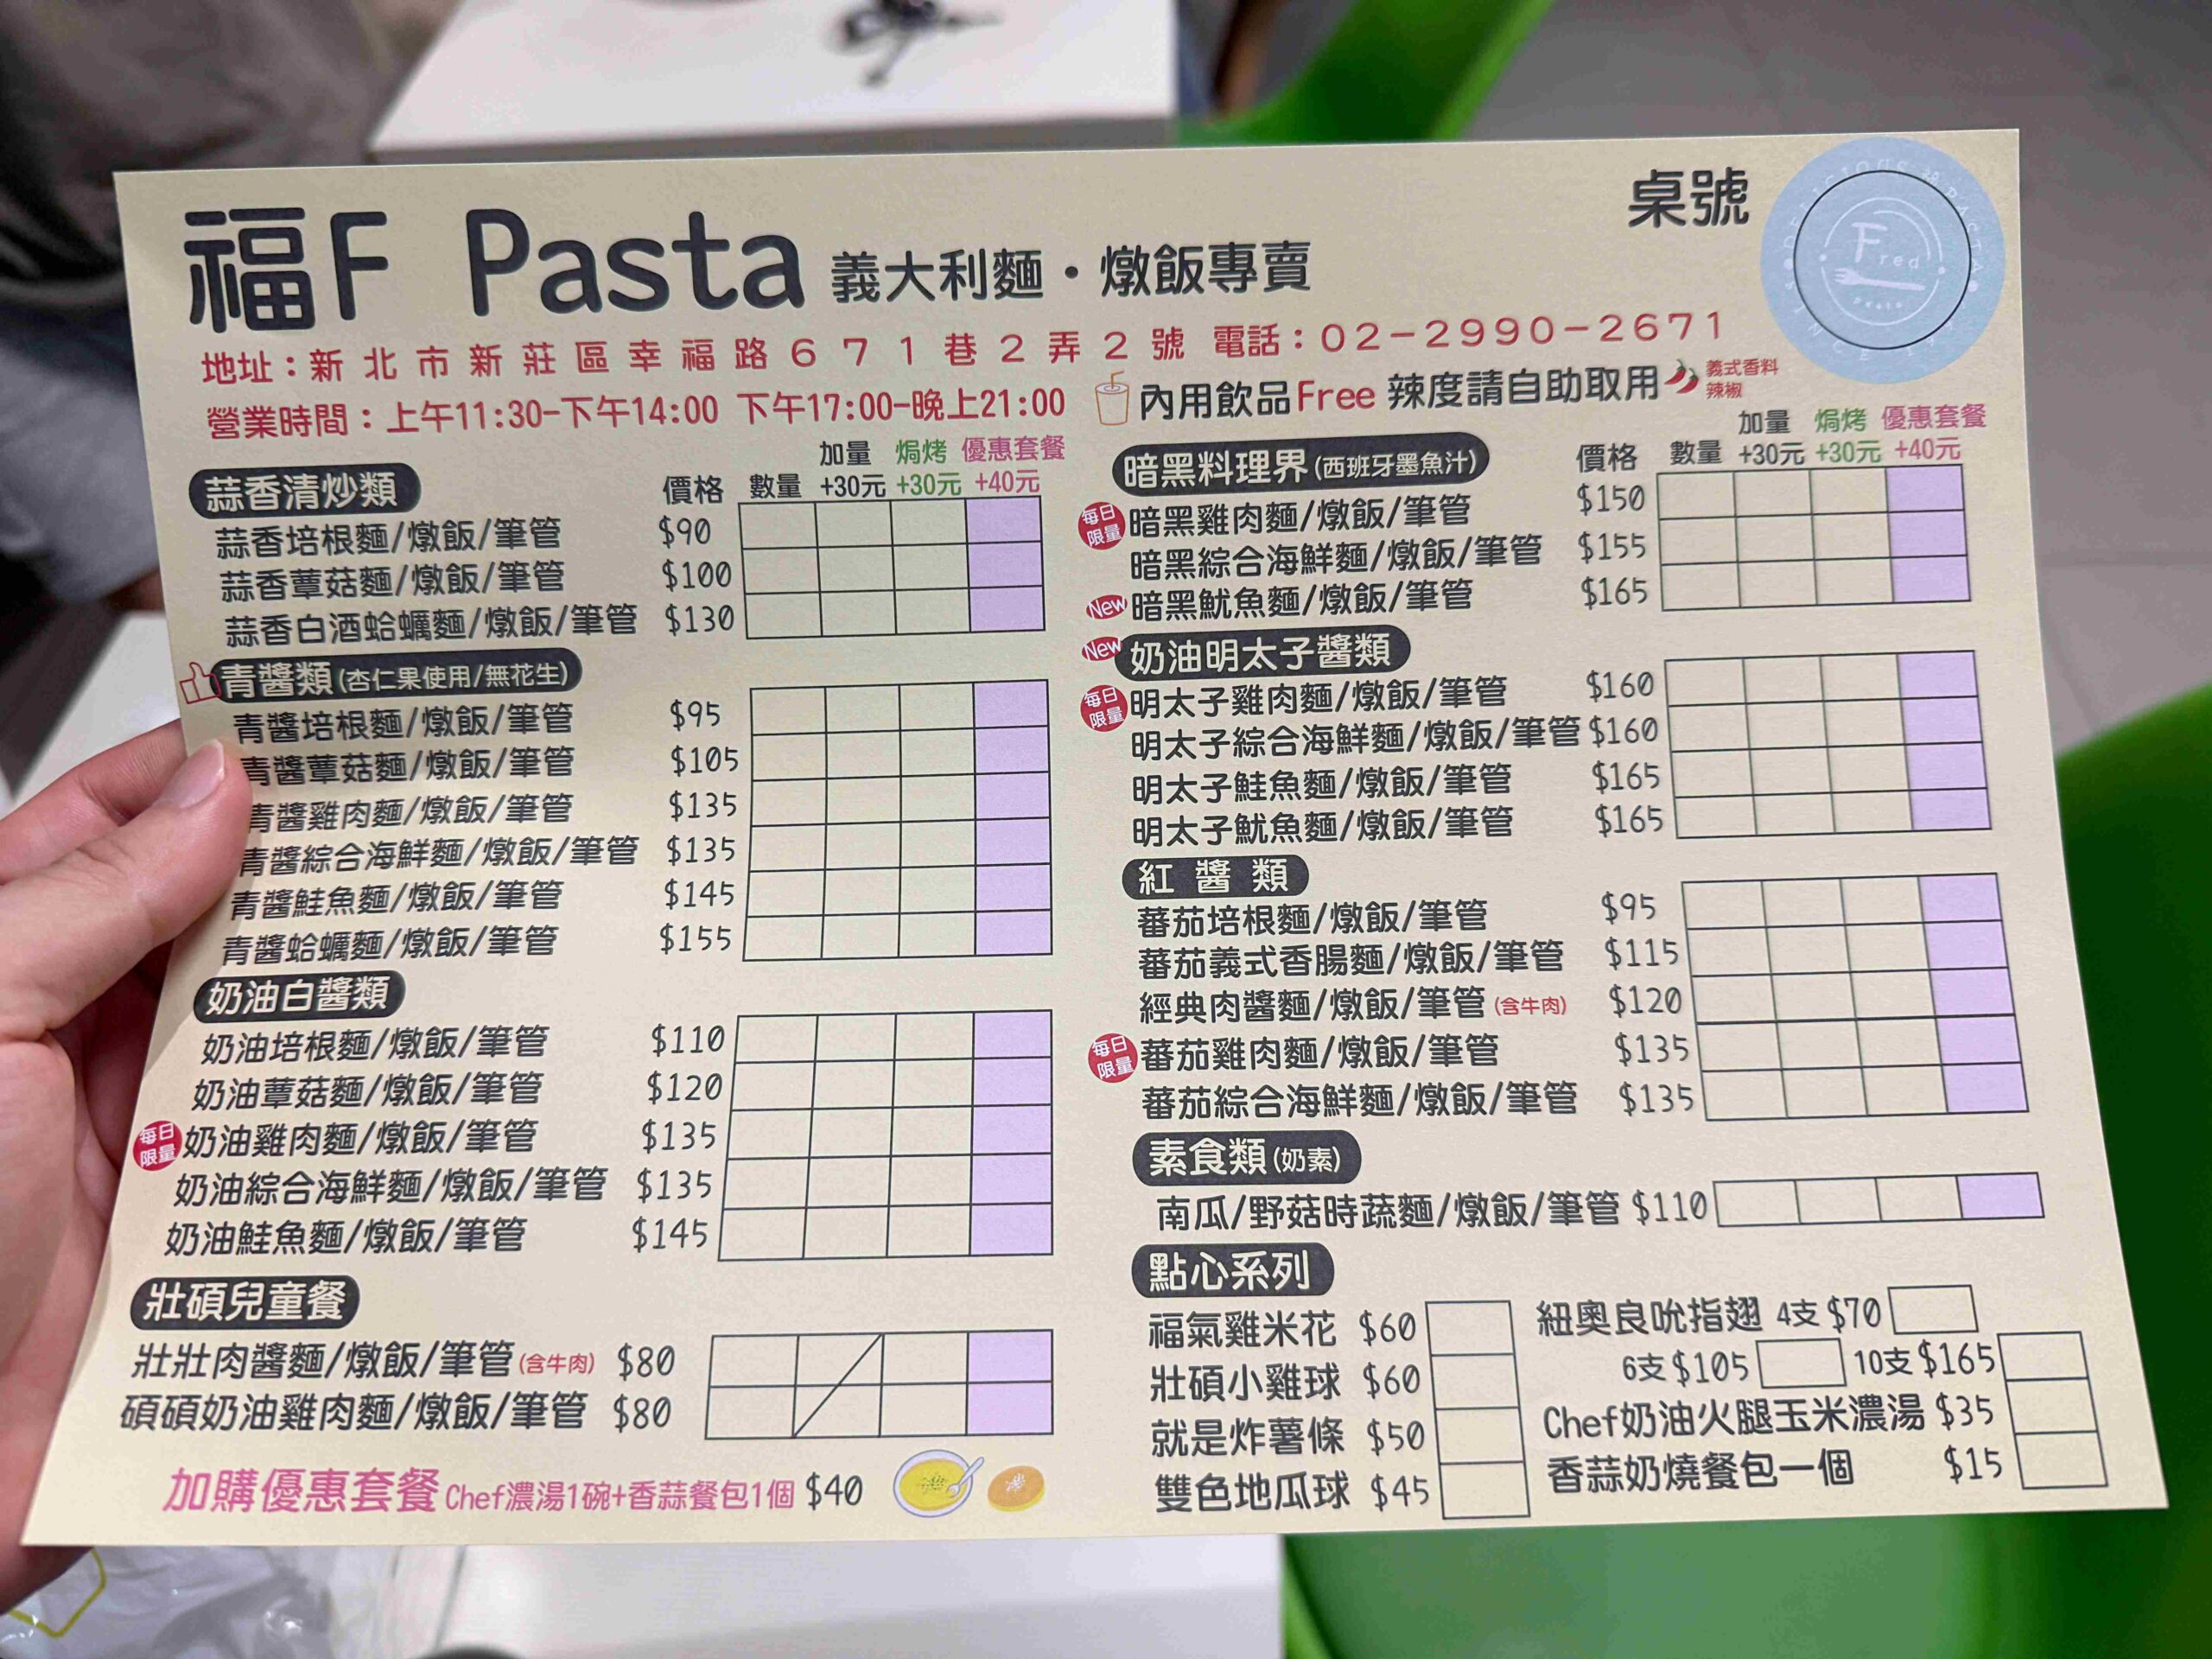 福F Pasta 義大利麵・燉飯專賣
桌號
Fred
Pasta
地址：新北市新莊區幸福路671巷2弄2號 電話：02-2990-2671
營業時間：上午11:30-下午14:00 下午17:00-晚上21:00
內用飲品Free 辣度請自助取用 義式香料 辣椒
蒜香清炒類 價格 數量 加量+30元 焗烤+30元 優惠套餐+40元
蒜香培根麵/燉飯/筆管 $90
蒜香蕈菇麵/燉飯/筆管 $100
蒜香白酒蛤蠣麵/燉飯/筆管 $130
青醬類(杏仁果使用/無花生)
青醬培根麵/燉飯/筆管 $95
青醬蕈菇麵/燉飯/筆管 $105
青醬雞肉麵/燉飯/筆管 $135
青醬綜合海鮮麵/燉飯/筆管 $135
青醬鮭魚麵/燉飯/筆管 $145
青醬蛤蠣麵/燉飯/筆管 $155
奶油白醬類
奶油培根麵/燉飯/筆管 $110
奶油蕈菇麵/燉飯/筆管 $120
每日限量 奶油雞肉麵/燉飯/筆管 $135
奶油綜合海鮮麵/燉飯/筆管 $135
奶油鮭魚麵/燉飯/筆管 $145
壯碩兒童餐
壯壯肉醬麵/燉飯/筆管(含牛肉) $80
碩碩奶油雞肉麵/燉飯/筆管 $80
加購優惠套餐 Chef濃湯1碗+香蒜餐包1個 $40
暗黑料理界(西班牙墨魚汁) 價格 數量 加量+30元 焗烤+30元 優惠套餐+40元
每日限量 暗黑雞肉麵/燉飯/筆管 $150
暗黑綜合海鮮麵/燉飯/筆管 $155
New 暗黑魷魚麵/燉飯/筆管 $165
New 奶油明太子醬類
每日限量 明太子雞肉麵/燉飯/筆管 $160
明太子綜合海鮮麵/燉飯/筆管 $160
明太子鮭魚麵/燉飯/筆管 $165
明太子魷魚麵/燉飯/筆管 $165
紅醬類
蕃茄培根麵/燉飯/筆管 $95
蕃茄義式香腸麵/燉飯/筆管 $115
經典肉醬麵/燉飯/筆管(含牛肉) $120
每日限量 蕃茄雞肉麵/燉飯/筆管 $135
蕃茄綜合海鮮麵/燉飯/筆管 $135
素食類(奶素)
南瓜/野菇時蔬麵/燉飯/筆管 $110
點心系列
福氣雞米花 $60
壯碩小雞球 $60
就是炸薯條 $50
雙色地瓜球 $45
紐奧良吮指翅 4支 $70
6支 $105 10支 $165
Chef奶油火腿玉米濃湯 $35
香蒜奶燒餐包一個 $15